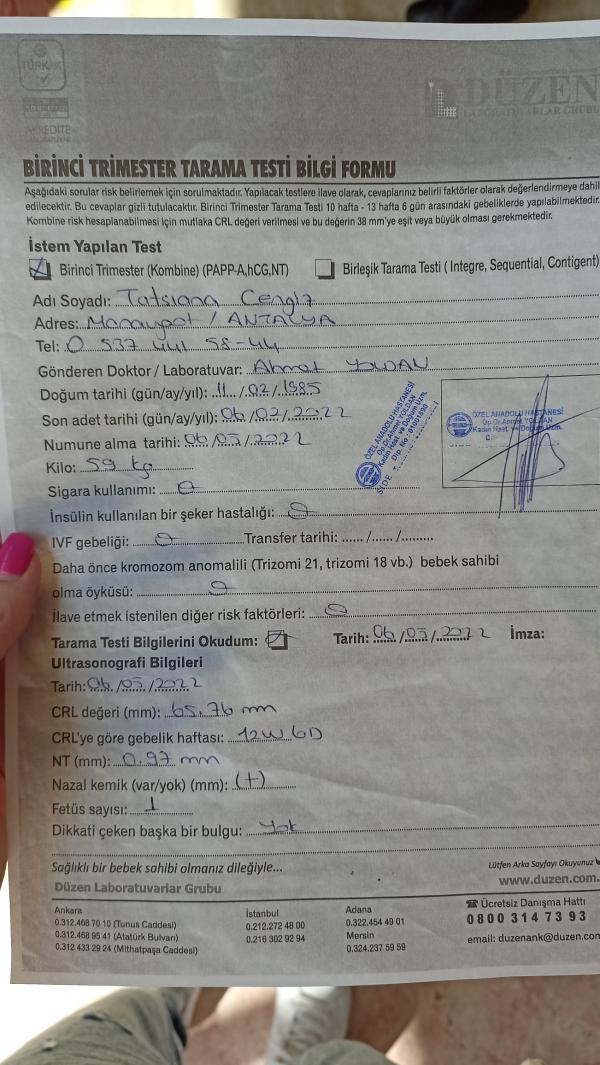 TÜRKAK
AKREDİTE
DÜZEN
LABORATUVARLAR GRUBU
BİRİNCİ TRİMESTER TARAMA TESTİ BİLGİ FORMU
Aşağıdaki sorular risk belirlemek için sorulmaktadır. Yapılacak testlere ilave olarak, cevaplarınız belirli faktörler olarak değerlendirmeye dahil
edilecektir. Bu cevaplar gizli tutulacaktır. Birinci Trimester Tarama Testi 10 hafta - 13 hafta 6 gün arasındaki gebeliklerde yapılabilmektedir.
Kombine risk hesaplanabilmesi için mutlaka CRL değeri verilmesi ve bu değerin 38 mm'ye eşit veya büyük olması gerekmektedir.
İstem Yapılan Test
Birinci Trimester (Kombine) (PAPP-A,hCG,NT) Birleşik Tarama Testi ( Integre, Sequential, Contigent)
Adı Soyadı: Tatsiana Cengiz
Adres: / ANTALYA
Tel: 0 537 441 58-44
Gönderen Doktor / Laboratuvar: Ahmet YOLDAN
Doğum tarihi (gün/ay/yıl): 11 / 02 / 1985
Son adet tarihi (gün/ay/yıl): 06 / 02 / 2022
Numune alma tarihi: 06 / 05 / 2022
ÖZEL ANADOLU HASTANESİ
Op.Dr.Ahmet YOLDAN
Kadın Hast. ve Doğum Uzm.
Dip. No:
SİDE
ÖZEL ANADOLU HASTANESİ
Op.Dr.Ahmet YOLDAN
Kadın Hast. ve Doğum Uzm.
Kilo: 59 kg
Sigara kullanımı: 0
İnsülin kullanılan bir şeker hastalığı: 0
IVF gebeliği: 0 Transfer tarihi: ...... /...... /.........
Daha önce kromozom anomalili (Trizomi 21, trizomi 18 vb.) bebek sahibi
olma öyküsü: 0
İlave etmek istenilen diğer risk faktörleri: 0
Tarama Testi Bilgilerini Okudum: Tarih: 06 / 05 / 2022 İmza:
Ultrasonografi Bilgileri
Tarih: 06 / 05 / 2022
CRL değeri (mm): 65.76 mm
CRL'ye göre gebelik haftası: 12W 6D
NT (mm): 0.97 mm
Nazal kemik (var/yok) (mm): (+)
Fetüs sayısı: 1
Dikkati çeken başka bir bulgu: Yok
Sağlıklı bir bebek sahibi olmanız dileğiyle...
Lütfen Arka Sayfayı Okuyunuz
Düzen Laboratuvarlar Grubu
www.duzen.com.
Ankara
0.312.468 70 10 (Tunus Caddesi)
0.312.468 95 41 (Atatürk Bulvarı)
0.312 433 29 24 (Mithatpaşa Caddesi)
İstanbul
0.212.272 48 00
0.216 302 92 94
Adana
0.322.454 49 01
Mersin
0.324.237 59 59
Ücretsiz Danışma Hattı
0 800 314 73 93
email: duzenank@duzen.com